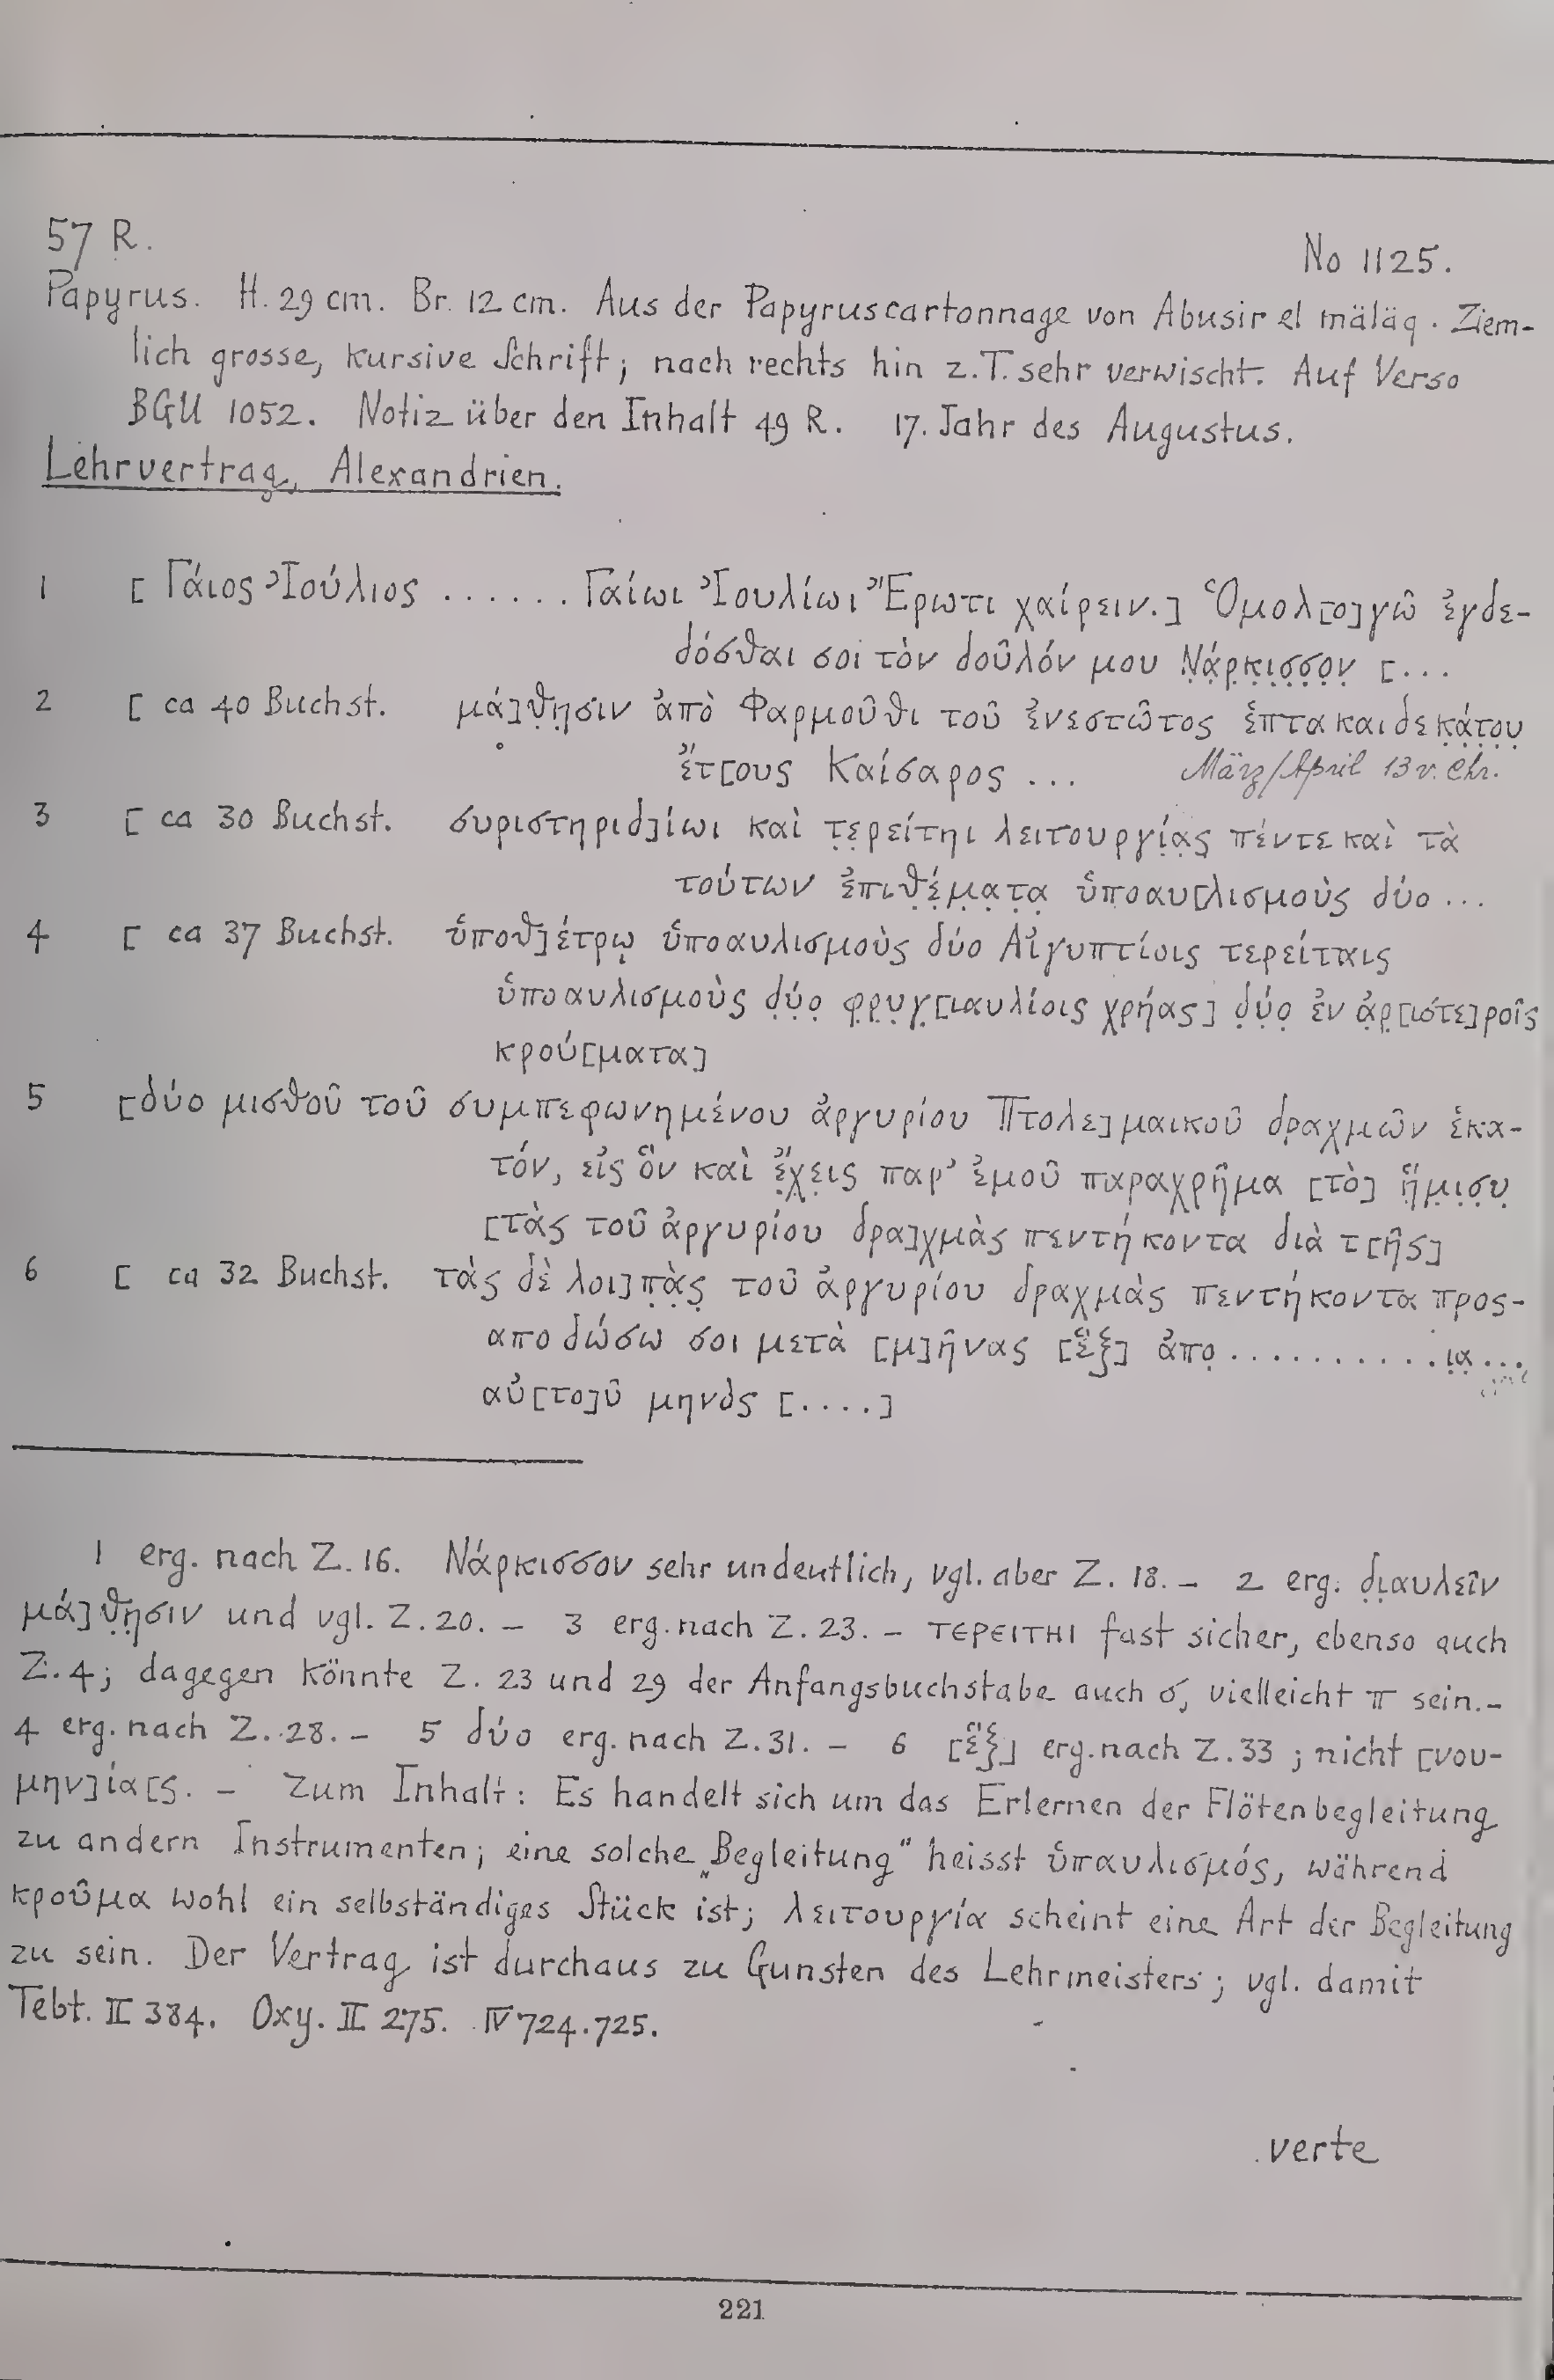 57 R.
No 1125.
Papyrus. H. 29 cm. Br. 12 cm. Aus der Papyruscartonnage von Abusir el mäläq. Ziem-
lich grosse, kursive Schrift; nach rechts hin z.T. sehr verwischt. Auf Verso
BGU 1052. Notiz über den Inhalt 49 R. 17. Jahr des Augustus.
Lehrvertrag, Alexandrien.
1 [Γάιος Ἰούλιος ...... Γαίωι Ἰουλίωι Ἔρωτι χαίρειν.] Ὁμολ[ο]γῶ ἐγδε-
δόσθαι σοι τὸν δοῦλόν μου Ṇάρ̣κ̣ι̣σ̣σ̣ο̣ν̣ [...
2 [ ca 40 Buchst. μά]θ̣η̣σιν ἀπὸ Φαρμοῦθι τοῦ ἐνεστῶτος ἑπτακαιδεκ̣ά̣τ̣ο̣υ̣
ἔτ[ους Καίσαρος ... März/April 13 v. Chr.
3 [ ca 30 Buchst. συριστηριδ]ίωι καὶ τ̣ε̣ρείτηι λειτουργί̣α̣ς̣ πέντε καὶ τὰ
τούτων ἐπιθ̣έ̣μ̣α̣τ̣α̣ ὑποαυ[λισμοὺς δύο ...
4 [ ca 37 Buchst. ὑποθ]έτρῳ ὑποαυλισμοὺς δύο Αἰγυπτίοις τερείταις
ὑποαυλισμοὺς δ̣ύ̣ο̣ φ̣ρ̣υ̣γ̣[ιαυλίοις χρήας] δ̣ύ̣ο̣ ἐν ἀ̣ρ̣[ιστε]ροῖς
κρού[ματα]
5 [δύο μισθοῦ τοῦ συμπεφωνημένου ἀργυρίου Πτολε]μαικοῦ δραχμῶν ἑκα-
τόν, εἰς ὃν καὶ ἔ̣χ̣ε̣ις παρ' ἐμοῦ παραχρῆμα [τὸ] ἥ̣μ̣ι̣σ̣υ̣
[τὰς τοῦ ἀργυρίου δρα]χμὰς πεντήκοντα διὰ τ[ῆς]
6 [ ca 32 Buchst. τὰς δὲ λοι]π̣ὰ̣ς̣ τοῦ ἀργυρίου δραχμὰς πεντήκοντα προς-
αποδώσω σοι μετὰ [μ]ῆνας [ἓξ] ἀπο̣ .......... ι̣α̣ ...
αὐ[το]ῦ μηνὸς [....]
1 erg. nach Z. 16. Νάρκισσον sehr undeutlich, vgl. aber Z. 18. – 2 erg. δ̣ι̣αυλεῖν
μά]θ̣η̣σιν und vgl. Z. 20. – 3 erg. nach Z. 23. – ΤΕΡΕΙΤΗΙ fast sicher, ebenso auch
Z. 4; dagegen könnte Z. 23 und 29 der Anfangsbuchstabe auch σ, vielleicht π sein. –
4 erg. nach Z. 28. – 5 δύο erg. nach Z. 31. – 6 [ἓξ] erg. nach Z. 33; nicht [νου-
μην]ία[ς. – Zum Inhalt: Es handelt sich um das Erlernen der Flötenbegleitung
zu andern Instrumenten; eine solche „Begleitung" heisst ὑπαυλισμός, während
κροῦμα wohl ein selbständiges Stück ist; λειτουργία scheint eine Art der Begleitung
zu sein. Der Vertrag ist durchaus zu Gunsten des Lehrmeisters; vgl. damit
Tebt. II 384. Oxy. II 275. IV 724.725.
verte
221